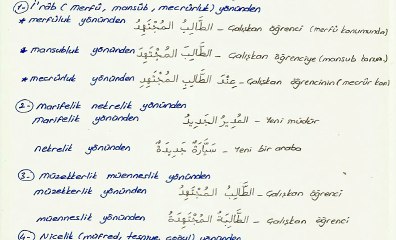 1- İ'râb (merfû, mansûb, mecrûrluk) yönünden
* merfûluk yönünden الطَّالِبُ المُجْتَهِدُ - Çalışkan öğrenci (merfû konumunda)
* mansubluk yönünden الطَّالِبَ المُجْتَهِدَ - Çalışkan öğrenciye (mansub
* mecrûrluk yönünden عِنْدَ الطَّالِبِ المُجْتَهِدِ - Çalışkan öğrencinin (mecrûr
2- marifelik nekrelik yönünden
marifelik yönünden المُدِيرُ الجَدِيدُ - Yeni müdür
nekrelik yönünden سَيَّارَةٌ جَدِيدَةٌ - Yeni bir araba
3- müzekkerlik müenneslik yönünden
müzekkerlik yönünden الطَّالِبُ المُجْتَهِدُ - Çalışkan öğrenci
müenneslik yönünden الطَّالِبَةُ المُجْتَهِدَةُ - Çalışkan öğrenci
4- Nicelik (müfred, tesniye, çoğul) yönünden